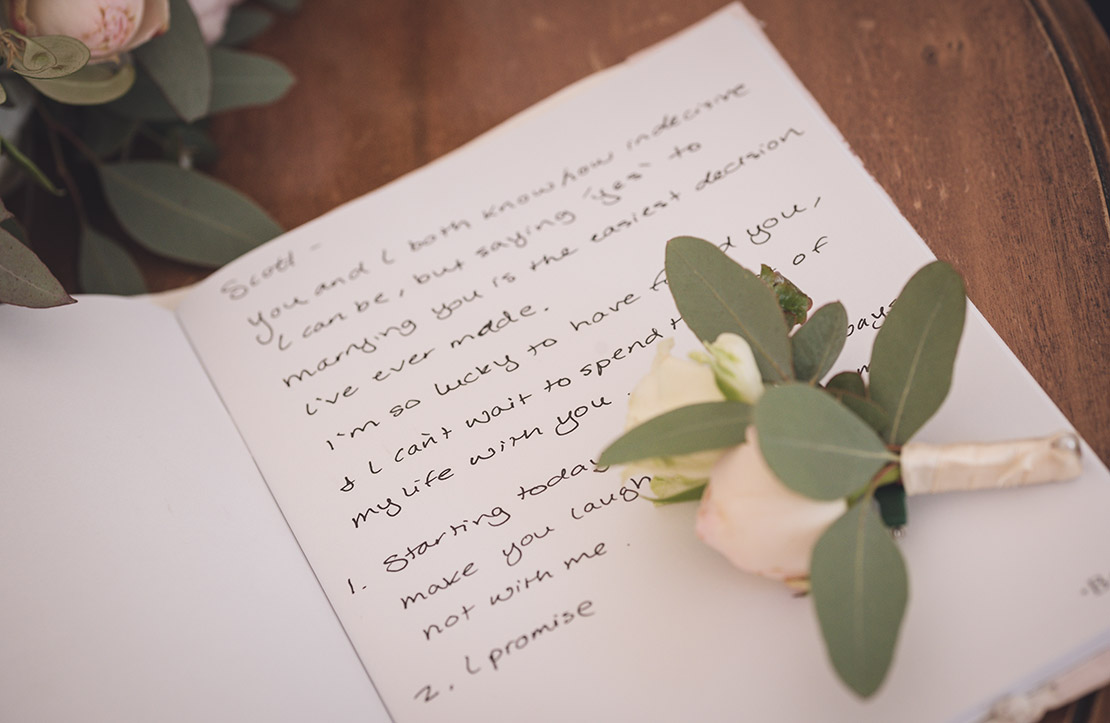 Scott -
you and I both know how indecisive
I can be, but saying 'yes' to
marrying you is the easiest decision
I've ever made.
I'm so lucky to have you,
& I can't wait to spend of
my life with you.
1. Starting today
make you laugh
not with me.
2. I promise